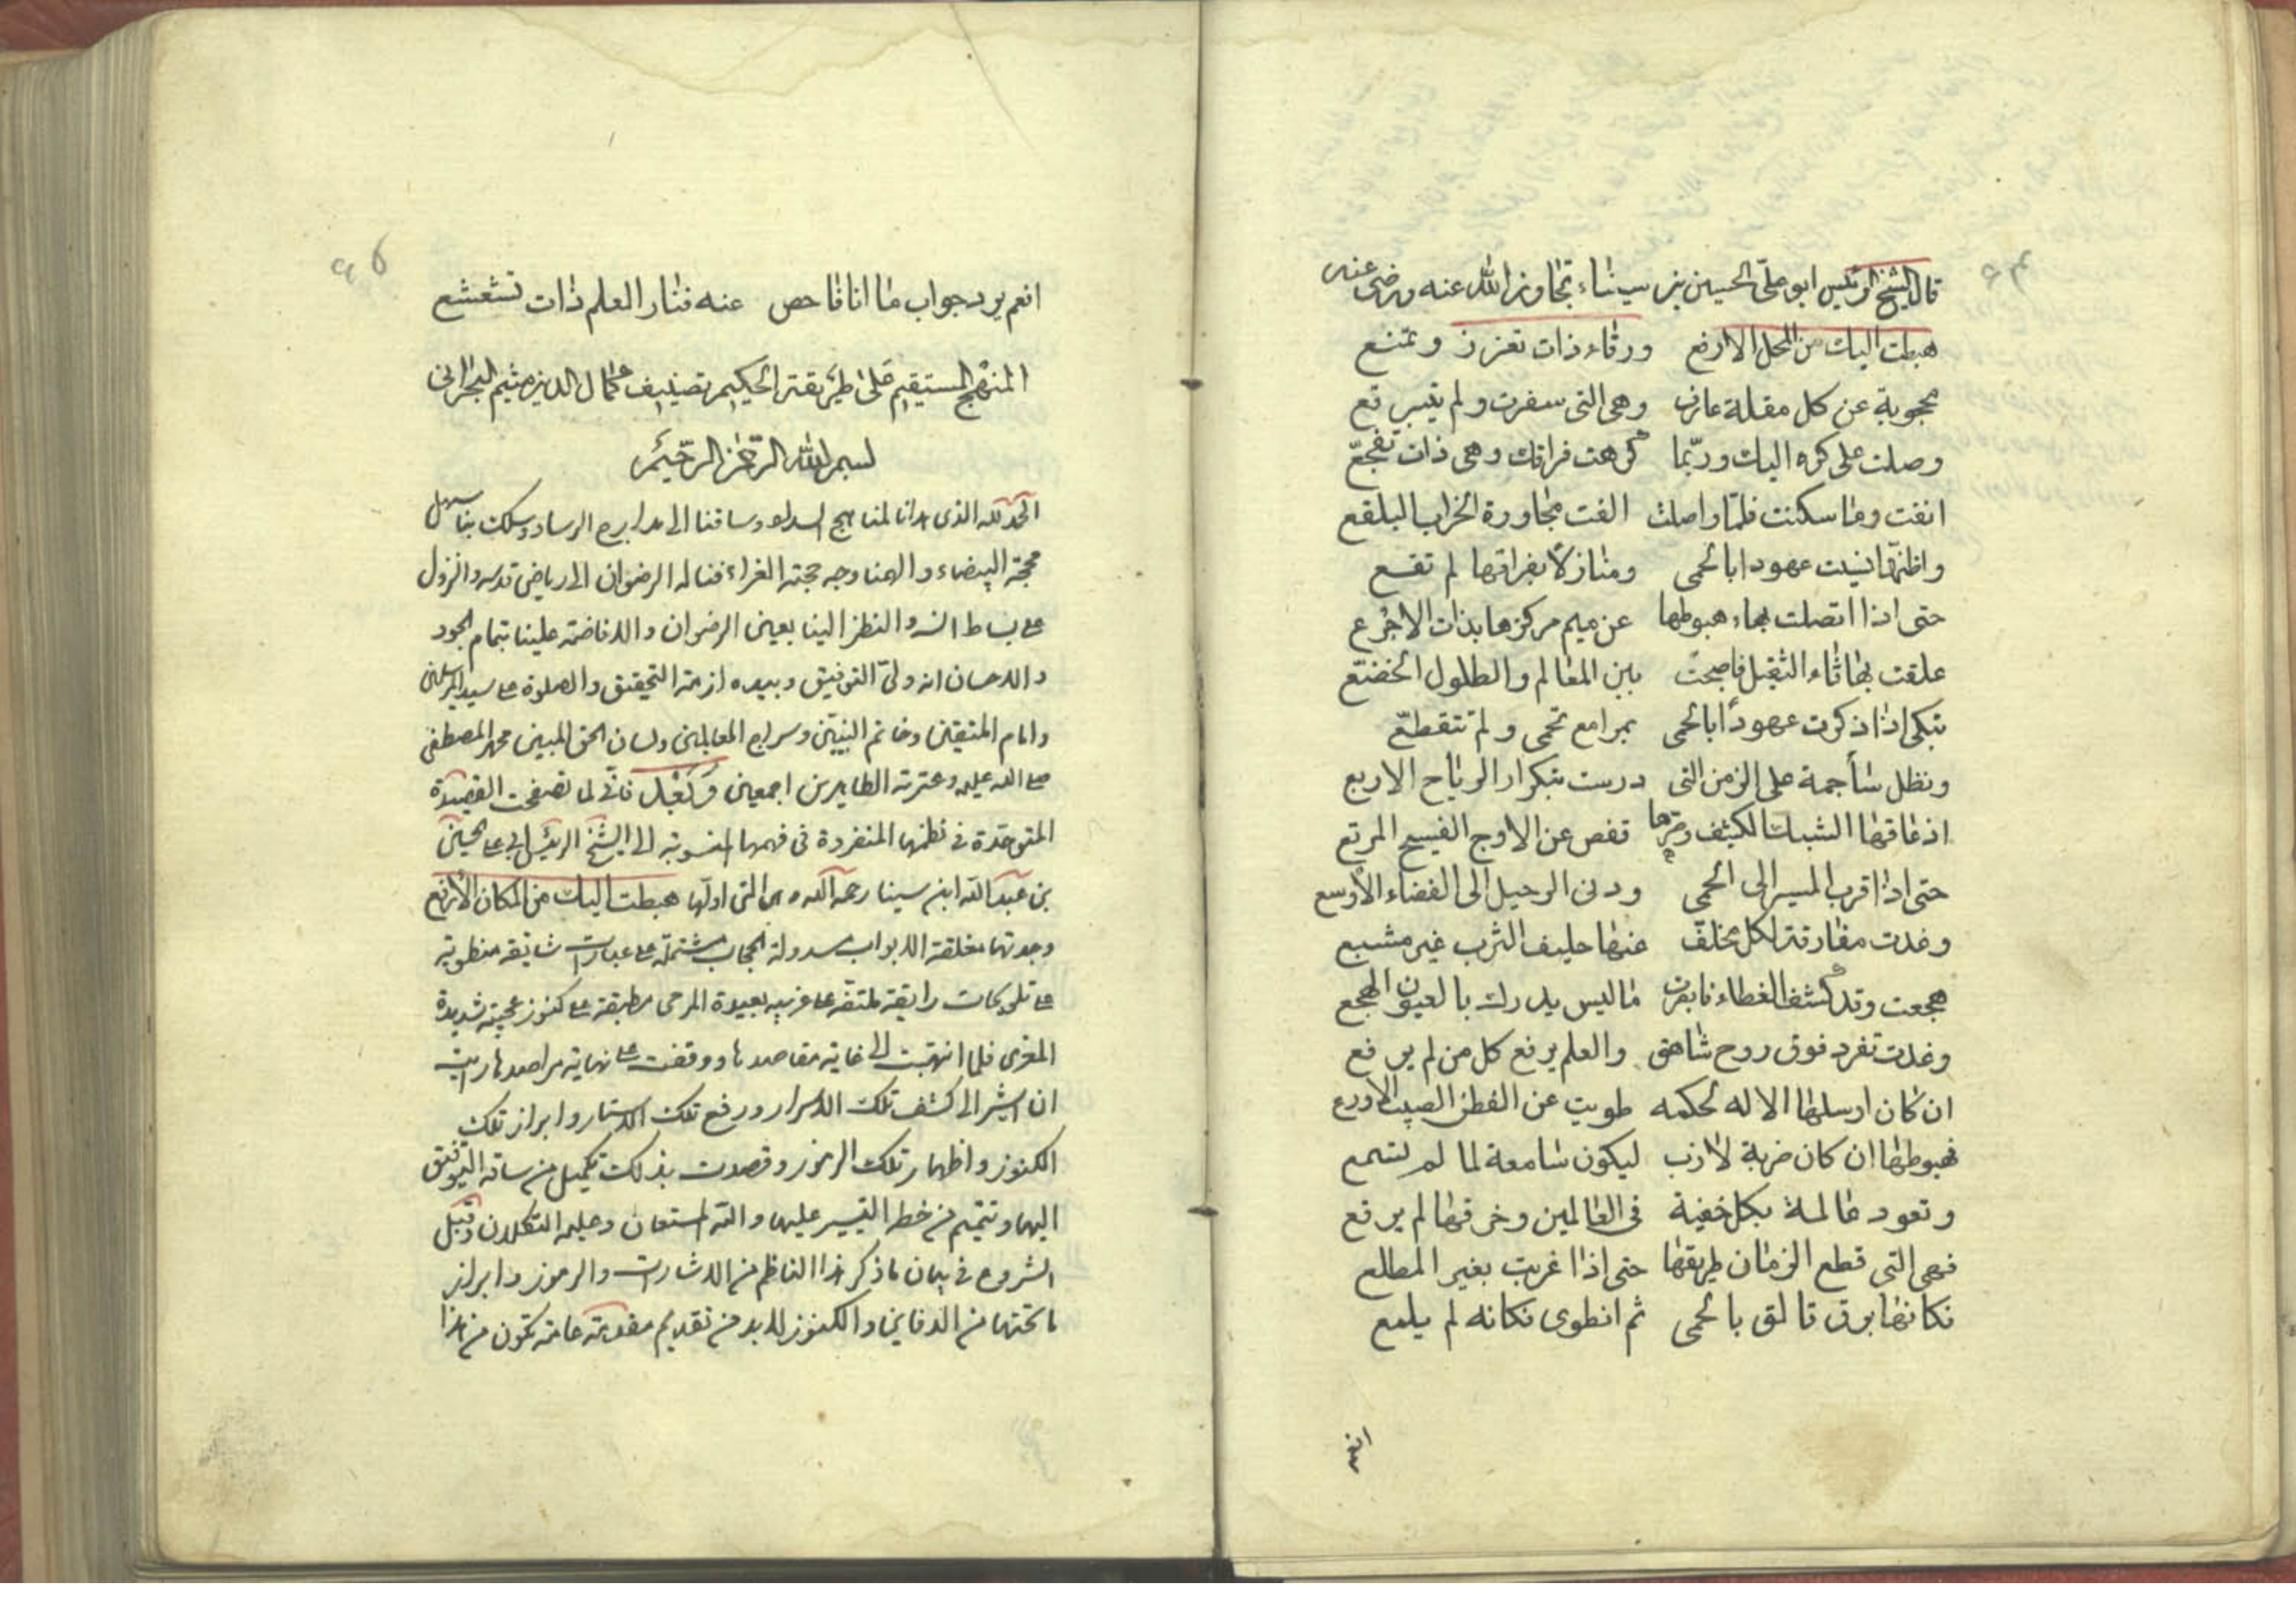 قال الشيخ الرئيس ابو علي الحسين بن سيناء تجاوز الله عنه ورضى عنه
هبطت اليك من المحل الارفع ورقاء ذات تعزز وتمنع
محجوبة عن كل مقلة عارف وهى التى سفرت ولم يتبرقع
وصلت على كره اليك وربّما كرهت فراقك وهى ذات تفجّع
انفت وما سكنت فلمّا واصلت الفت مجاورة الخراب البلقع
واظنّها نسيت عهودا بالحمى ومنازلاً بفراقها لم تقنع
حتى اذا اتصلت بهاء هبوطها عن ميم مركزها بذات الاجرع
علقت بها ثاء الثقيل فاصبحت بين المعالم والطلول الخضّع
تبكى اذا ذكرت عهوداً بالحمى بمدامع تهمى ولم تتقطّع
وتظل ساجمة على الزمن التى درست بتكرار الرياح الاربع
اذ عاقها الشبك الكثيف وصرها قفص عن الاوج الفسيح المربع
حتى اذا قرب المسير الى الحمى ودنى الرحيل الى الفضاء الأوسع
وغدت مفارقة لكل مخلّف عنها حليف الترب غير مشيع
هجعت وقد كشف الغطاء فابصرت ما ليس يدرك بالعيون الهجع
وغدت تغرد فوق روح شاهق والعلم يرفع كل من لم يرفع
ان كان ارسلها الاله لحكمه طويت عن الفطن اللبيب الاورع
فهبوطها ان كان ضربة لازب ليكون سامعة لما لم تسمع
وتعود عالمة بكل خفية فى العالمين وخرقها لم يرقع
فهى التى قطع الزمان طريقها حتى اذا غربت بغير المطلع
فكانها برق تالق بالحمى ثم انطوى فكانه لم يلمع
انعم
انعم برد جواب ما انا فاحص عنه فنار العلم ذات تشعشع
المنهج المستقيم على طريقة الحكيم تصنيف كمال الدين ميثم البحرانى
بسم الله الرحمن الرحيم
الحمد لله الذى هدانا لمناهج السداد وساقنا الى مدارج الرشاد وسلك بنا سبيل
محجته البيضاء والهمنا وجه حجته الغراء فنساله الرضوان الى رياض قدسه والنزول
على بساط انسه والنظر الينا بعين الرضوان والافاضة علينا بتمام الجود
والاحسان انه ولىّ التوفيق وبيده ازمة التحقيق والصلوة على سيد المرسلين
وامام المتقين وخاتم النبيّين وسراج العالمين ولسان الحق المبين محمد المصطفى
صلى الله عليه وعترته الطاهرين اجمعين وبعد فانّى لما تصفحت القصيدة
المتوحّدة فى نظمها المنفردة فى فهمها المنسوبة الى الشيخ الرئيس ابى على الحسين
بن عبد الله ابن سينا رحمه الله وهى التى اولها هبطت اليك من المكان الارفع
وجدتها مغلقة الابواب مسدولة الحجاب مشتملة على عبارات شايقة منطوية
على تلويحات رايقة ملتفة على غريبه بعيدة المرمى مطبقة على كنوز عجيبة شديدة
المغزى فلما انتهيت الى غاية مقاصدها ووقفت على نهاية مراصدها رايت
ان اشير الى كشف تلك الاسرار ورفع تلك الاستار وابراز تلك
الكنوز واظهار تلك الرموز وقصدت بذلك تكميل من ساقه التوفيق
اليها وتتميم من خطر التيسير عليها والله المستعان وعليه التكلان وقبل
الشروع فى بيان ما ذكر هذا الناظم من الاشارات والرموز وابراز
ما تحتها من الدفاين والكنوز لابد من تقديم مقدمة عامة تكون من هذا